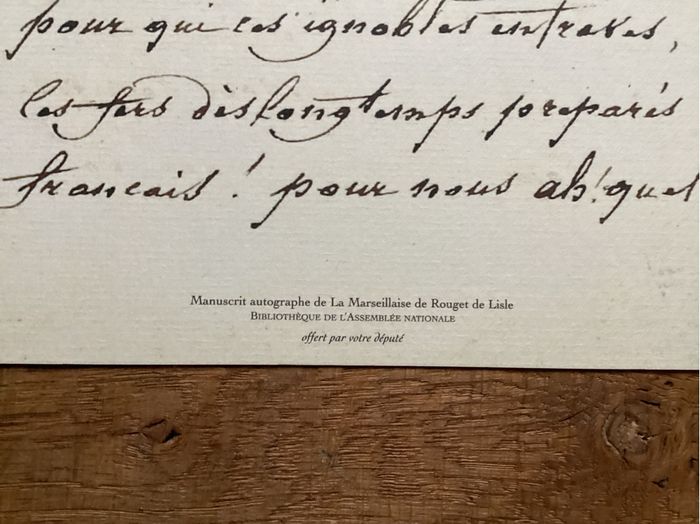 pour qui ces ignobles entraves,
les fers dès longtemps preparés
francais ! pour nous ah! quel
Manuscrit autographe de La Marseillaise de Rouget de Lisle
BIBLIOTHÈQUE DE L'ASSEMBLÉE NATIONALE
offert par votre député